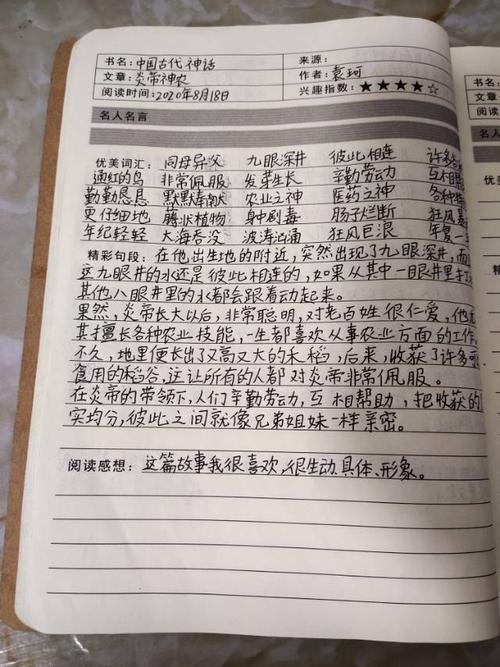 书名：中国古代神话 来源：
文章：炎帝神农 作者：袁珂
阅读时间：2020年8月18日 兴趣指数：★★★★☆
名人名言
优美词汇：同母异父 九眼深井 彼此相连 许多
通红的鸟 非常佩服 发芽生长 辛勤劳动 互相
勤勤恳恳 默默奉献 农业之神 医药之神 各种
更仔细地 藤状植物 身中剧毒 肠子烂断 狂风
年纪轻轻 大海吞没 波涛汹涌 狂风巨浪 年复一
精彩句段：在他出生地的附近，突然出现了九眼深井，而
这九眼井的水还是彼此相连的，如果从其中一眼井里打
其他八眼井里的水都会跟着动起来。
果然，炎帝长大以后，非常聪明，对老百姓很仁爱，他
其擅长各种农业技能，一生都喜欢从事农业方面的工作
不久，地里便长出了又高又大的禾稻，后来，收获了许多可
食用的稻谷，这让所有的人都对炎帝非常佩服。
在炎帝的带领下，人们辛勤劳动，互相帮助，把收获的
实均分，彼此之间就像兄弟姐妹一样亲密。
阅读感想：这篇故事我很喜欢，很生动、具体、形象。